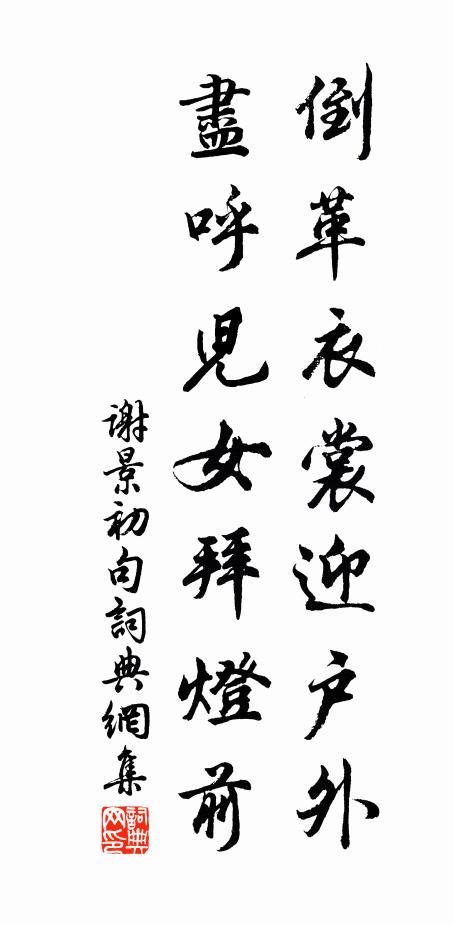 倒革衣裳迎户外
盡呼兒女拜燈前
謝景初句詞典網集
詞典网印